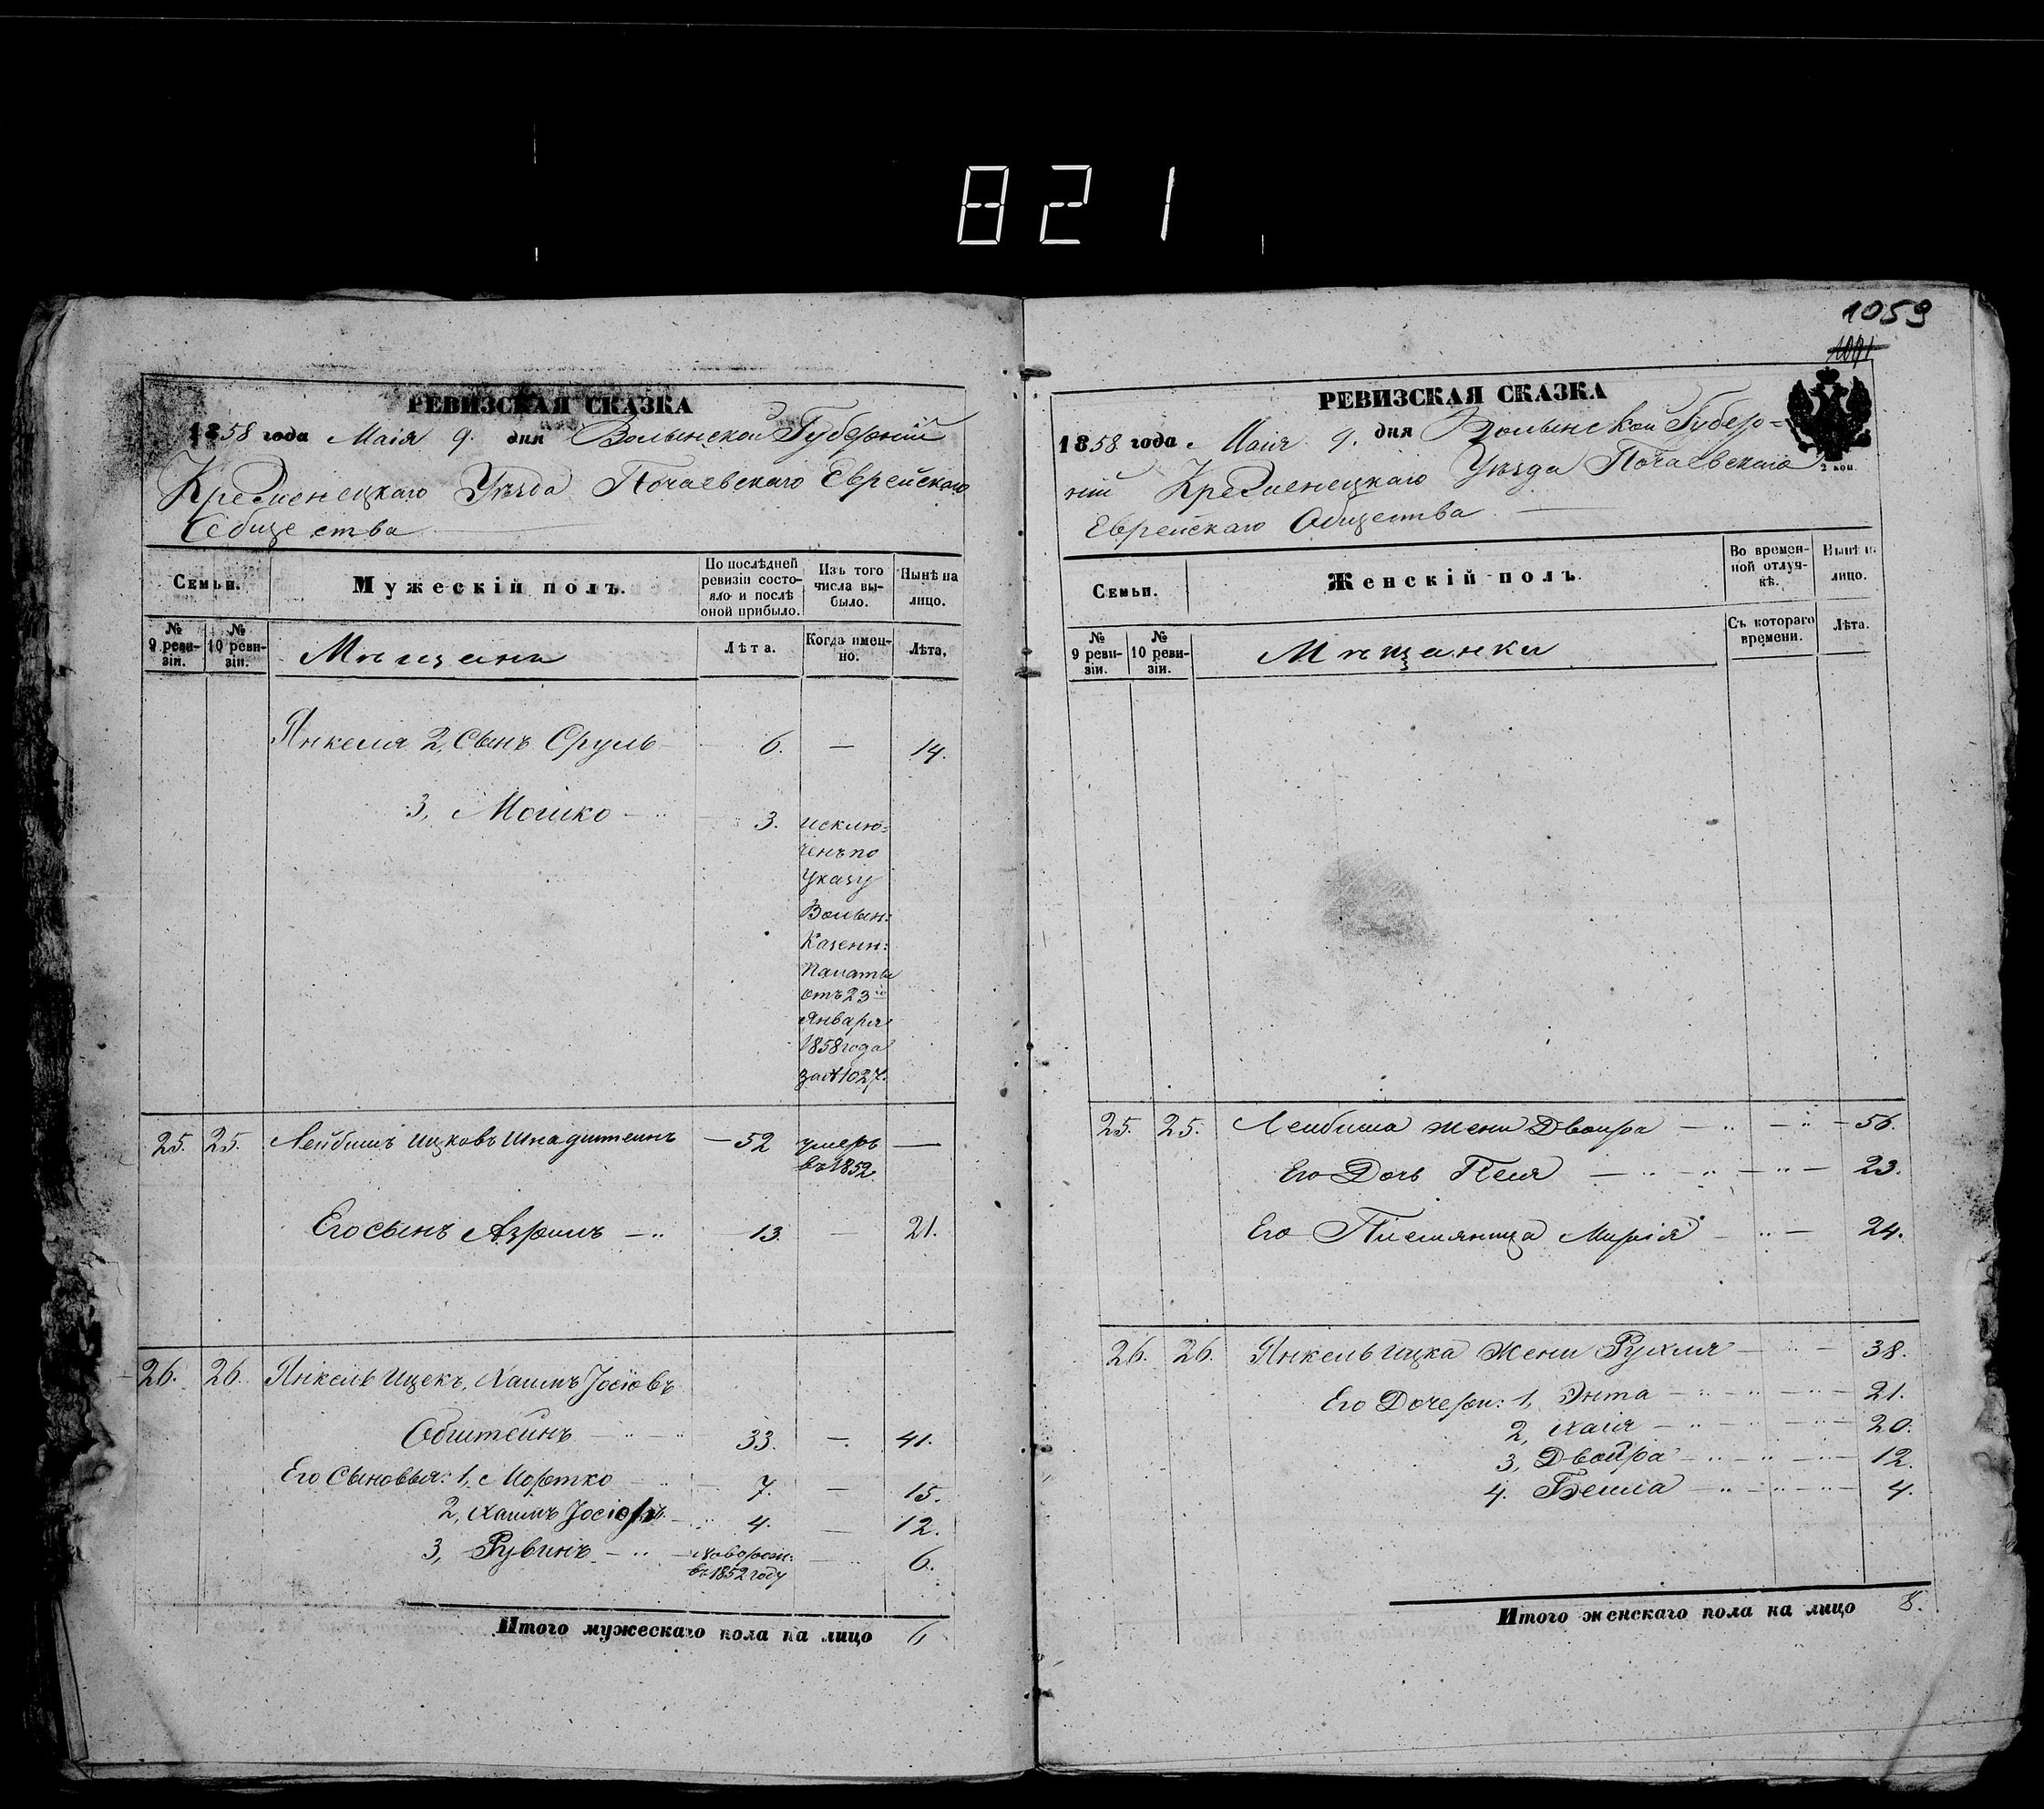 821
РЕВИЗСКАЯ СКАЗКА
1858 года Маія 9. дня Волынской Губерніи
Кременецкаго Уѣзда Почаевскаго Еврейскаго
Общества
Семьи.
Мужескій полъ.
По послѣдней ревизіи состояло и послѣ оной прибыло.
Изъ того числа выбыло.
Нынѣ на лицо.
№ 9 реви-зіи.
№ 10 реви-зіи.
Мѣщани
Лѣта.
Когда имен-но.
Лѣта.
Янкеля 2, Сынъ Сруль 6. — 14.
3, Мошко 3. исклю=
ченъ по
Указу
Волын:
Казенн:
Палаты
отъ 23го
Января
1858 года
за № 1027.
25. 25. Лейбишъ Ицковъ Шпадштеинъ — 52 умеръ —
въ 1852.
Его сынъ Азриль 13. — 21.
26. 26. Янкель Ицекъ, Хаимъ Іосіовъ
Обштейнъ 33. — 41.
Его Сыновья: 1, Мортко 7. — 15.
2, Хаимъ Іосіоръ 4. — 12.
3, Рувинъ новорож: — 6.
въ 1852 году
Итого мужескаго пола на лицо 6
1059
1091
РЕВИЗСКАЯ СКАЗКА
1858 года Маія 9. дня Волынской Губер=
ніи Кременецкаго Уѣзда Почаевскаго
2 коп.
Еврейскаго Общества
Семьи.
Женскій полъ.
Во времен-ной отлуч-кѣ.
Нынѣ на лицо.
№ 9 реви-зіи.
№ 10 реви-зіи.
Мѣщанки
Съ котораго времени.
Лѣта.
25. 25. Лейбиша жена Двойра 56.
Его Дочь Песя 23.
Его Племяница Мирія 24.
26. 26. Янкель Ицка Жена Рухля 38.
Его Дочери: 1, Энта 21.
2, Хаія 20.
3, Двойра 12.
4. Бейла 4.
Итого женскаго пола на лицо 8.